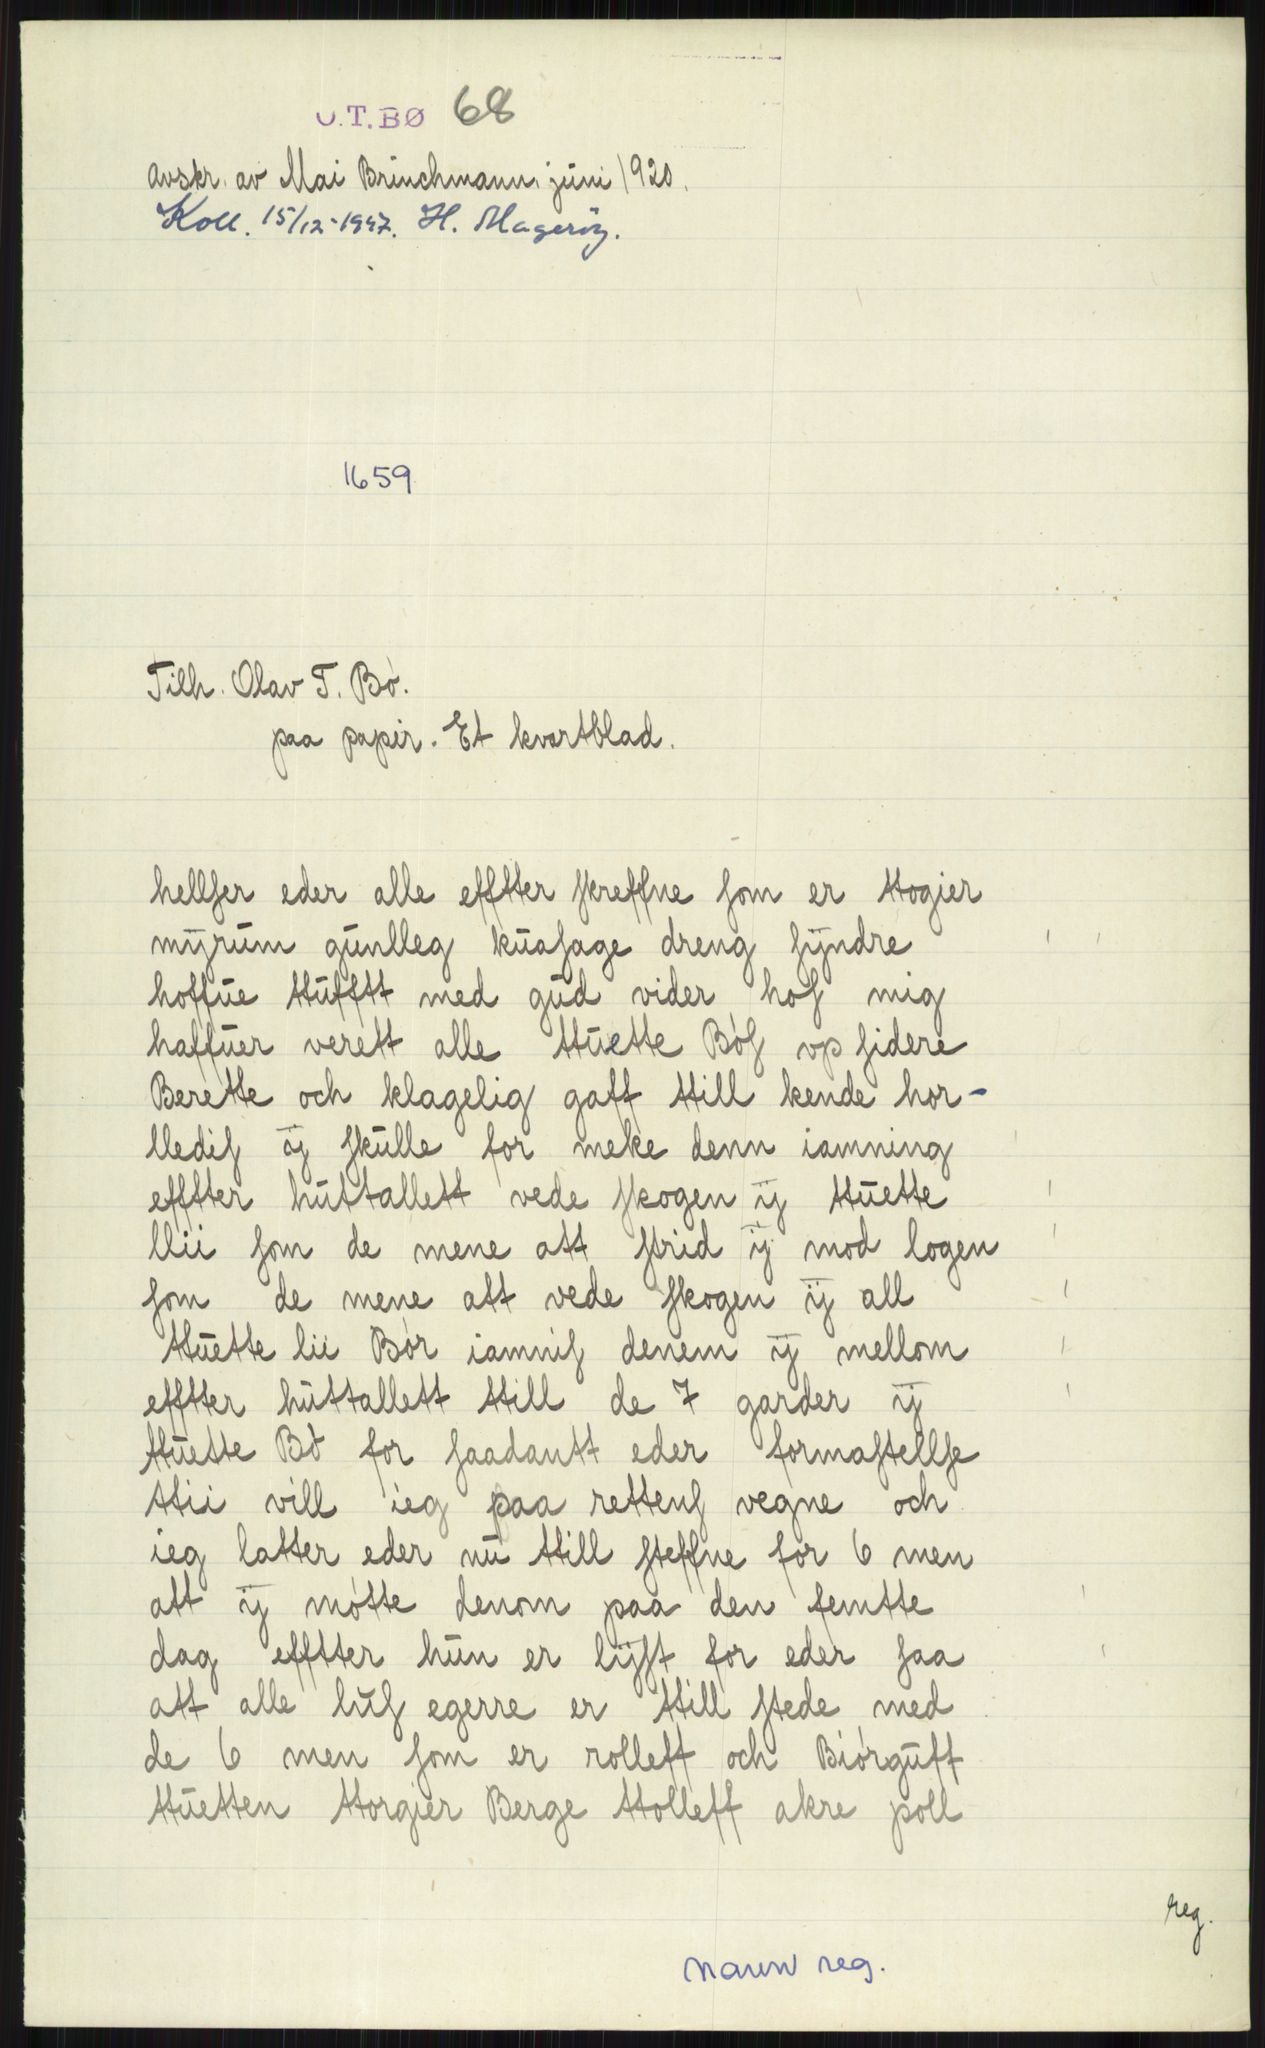 O.T.BØ 68
avskr. av Mai Brinchmann, juni 1920.
Koll. 15/12-1947. H. Magerøy.
1659
Tilh. Olav T. Bø.
paa papir. Et kvartblad.
hellser eder alle efftter skreffne som er ttogier
myrum gunlleg kuasage dreng syndre
hoffue ttufftt med gud vider hos mig
haffuer verett alle ttuette Bøs op sidere
Berette och klagelig gaff ttill kende hor-
lledis ij skulle for meke denn iamning
efftter huttallett vede skogen ij ttuette
llii som de mene att strid ij mod logen
som de mene att vede skogen ij all
ttuette lii Bør iamnis denem ij mellom
efftter huttallett ttill de 7 garder ij
ttuette Bø for saadantt eder formastellse
ttii vill ieg paa rettens vegne och
ieg latter eder nu ttill steffne for 6 men
att ij møtte denom paa den femtte
dag efftter hun er lijst for eder saa
att alle lus egerre er ttill stede med
de 6 men som er rolleff och Biørguff
ttuetten ttorgier Berge ttolleff akre poll
reg.
navn reg.